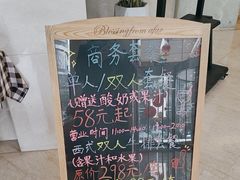 Blessing from afar
商务套餐
单人/双人套餐
(赠送酸奶或果汁)
58元起
营业时间
西式双人牛排套餐
(含果汁和水果)
原价298元